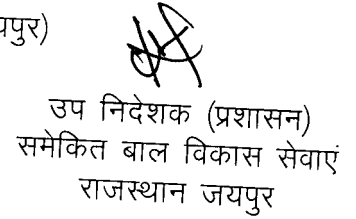 पपुर)
उप निदेशक (प्रशासन)
समेकित बाल विकास सेवाएं
राजस्थान जयपुर